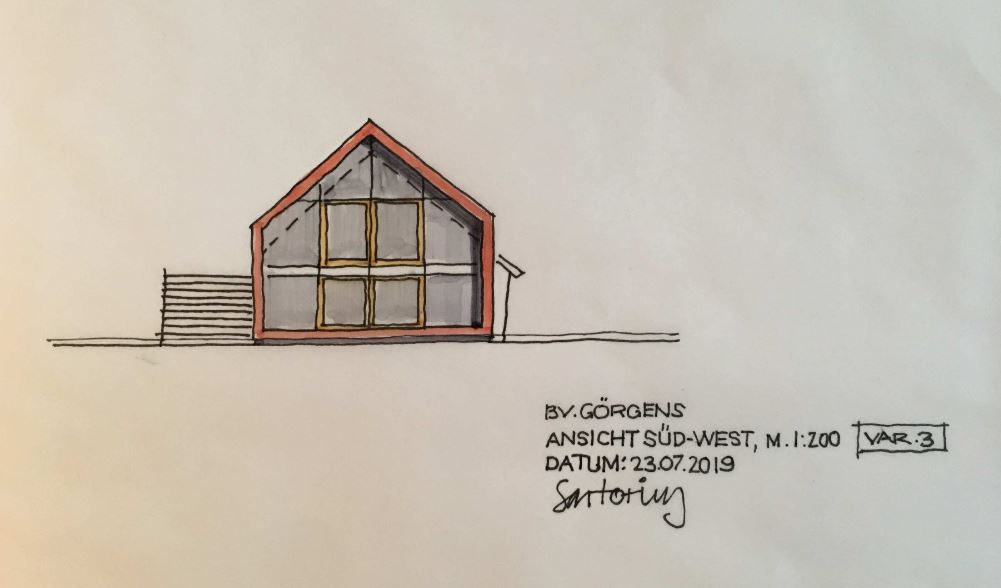 BV. GÖRGENS
ANSICHT SÜD-WEST, M. 1:200 VAR. 3
DATUM: 23.07.2019